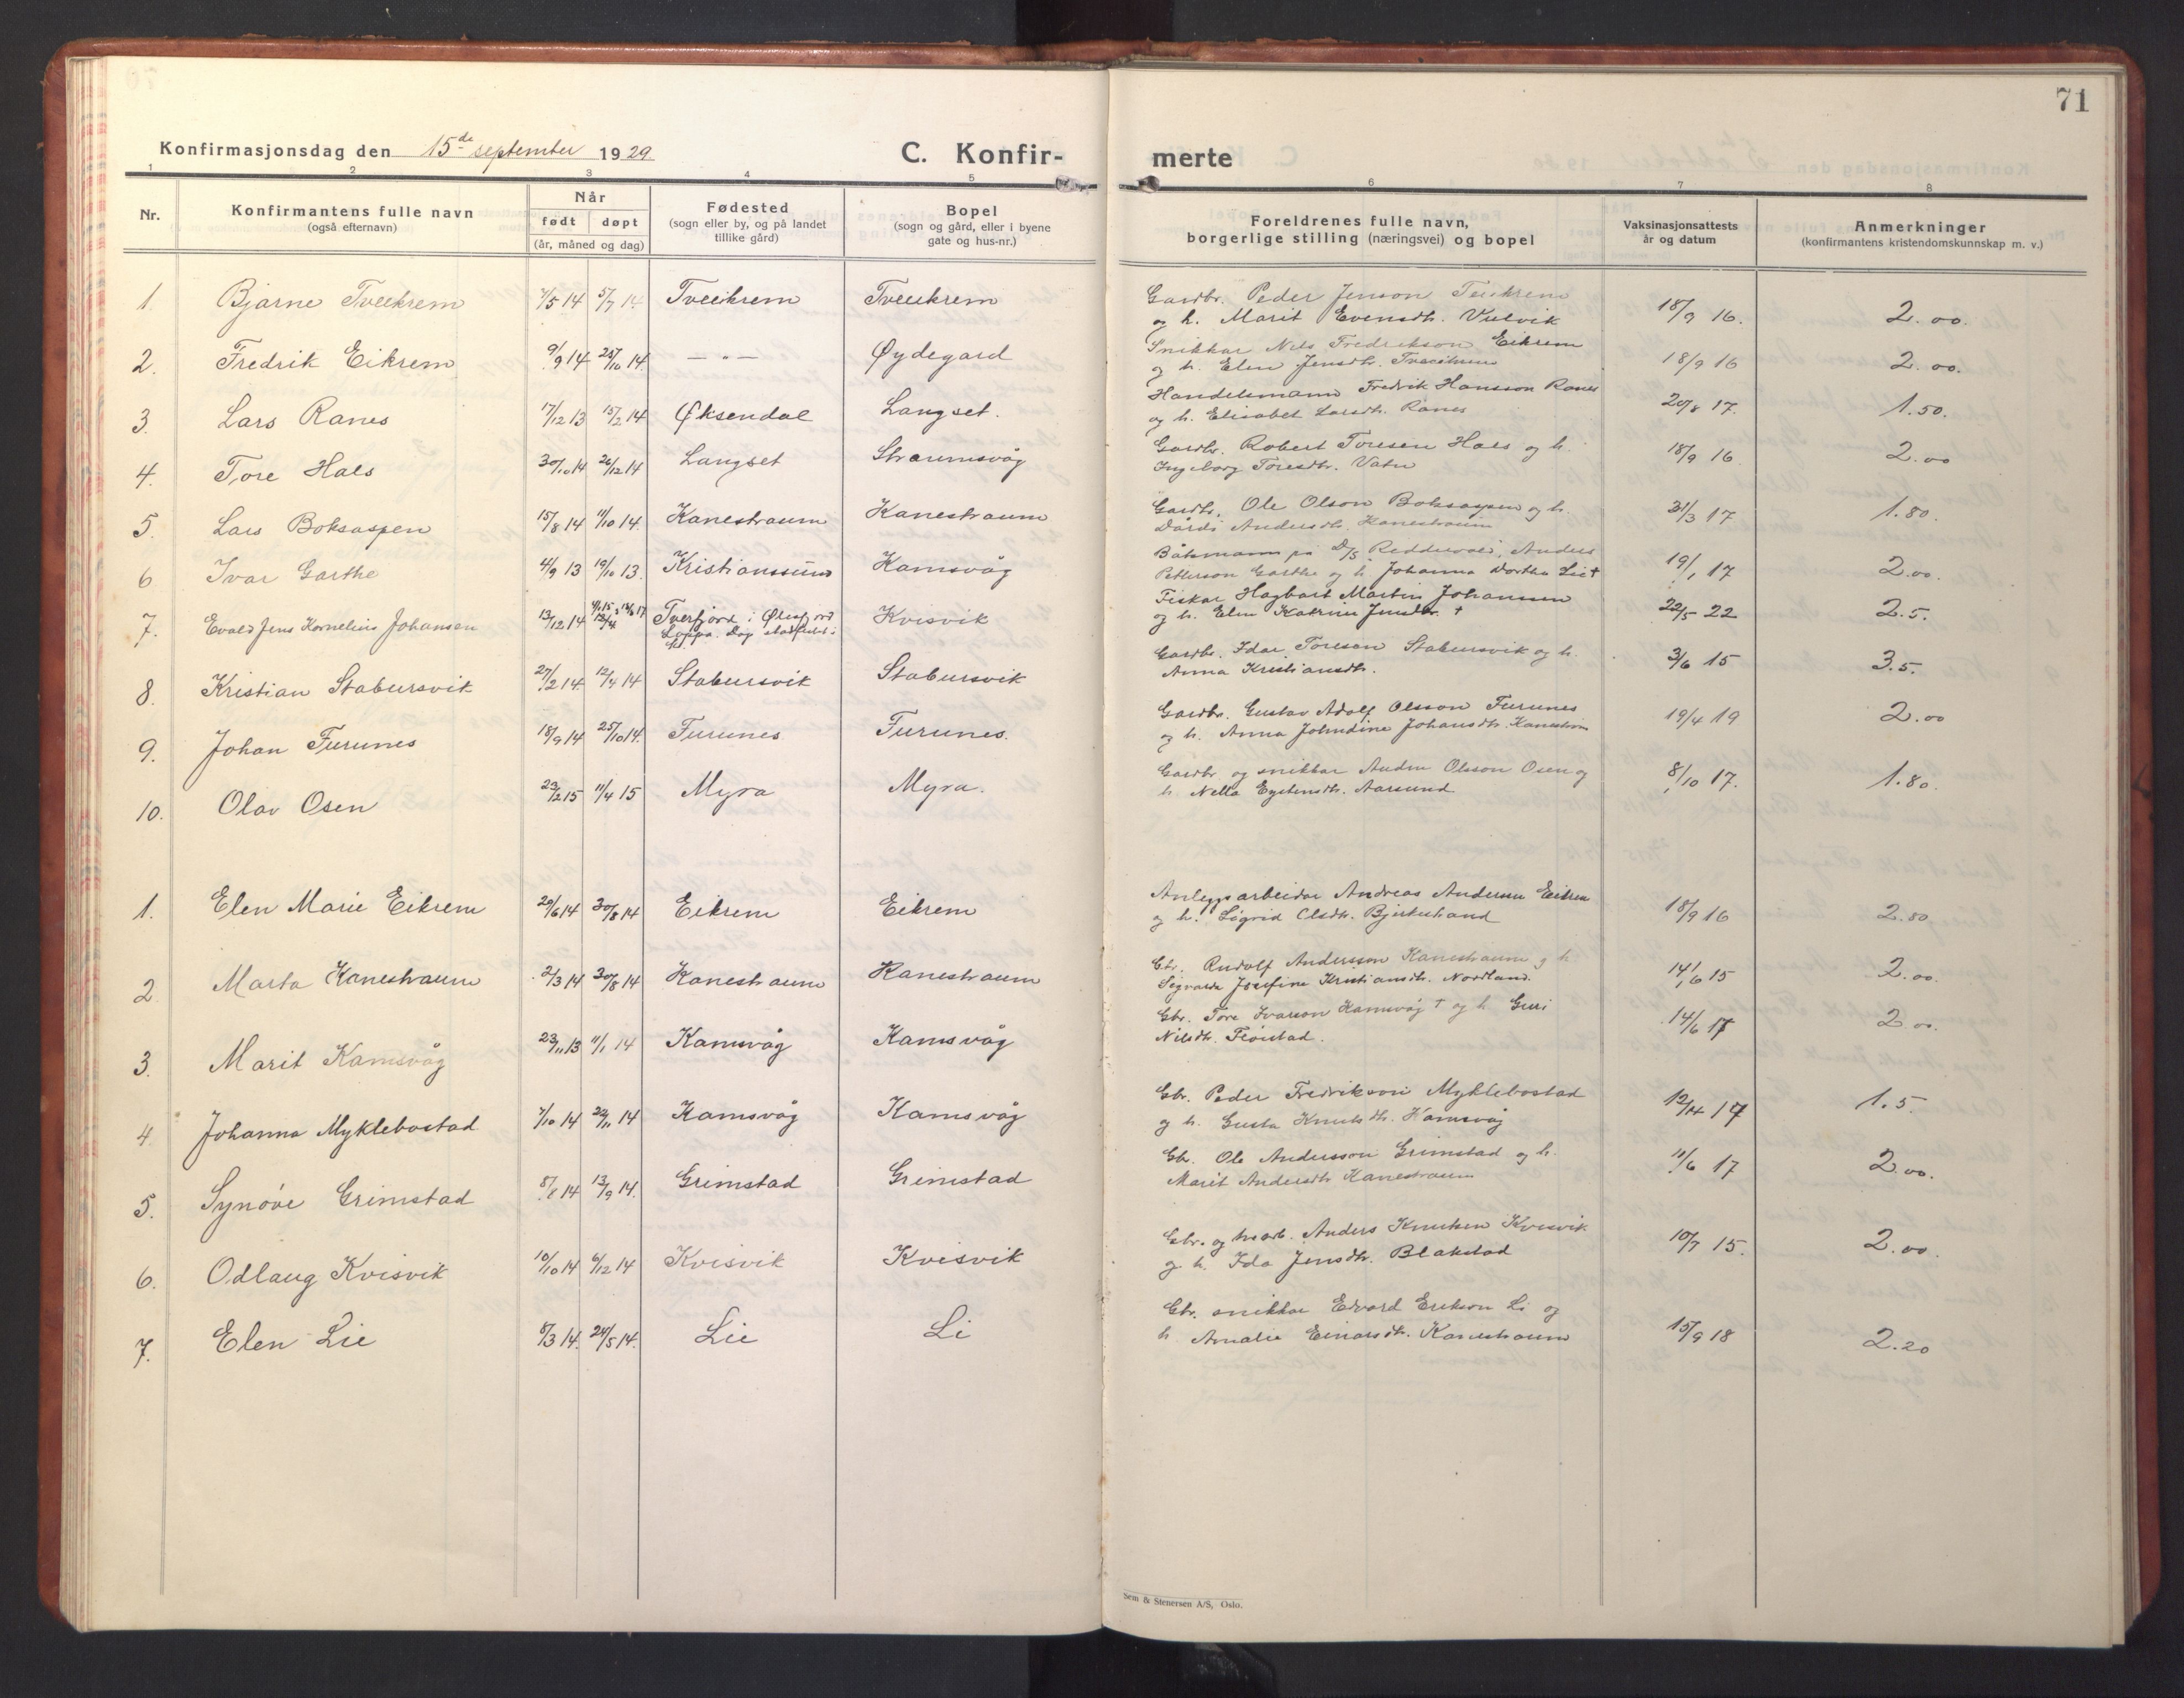 71
Konfirmasjonsdag den 15de september 1929
C. Konfir-
merte
1 2 3 4 5 6 7 8
Nr.
Konfirmantens fulle navn
(også efternavn)
Når
født døpt
(år, måned og dag)
Fødested
(sogn eller by, og på landet
tillike gård)
Bopel
(sogn og gård, eller i byene
gate og hus-nr.)
Foreldrenes fulle navn,
borgerlige stilling (næringsvei) og bopel
Vaksinasjonsattests
år og datum
Anmerkninger
(konfirmantens kristendomskunnskap m. v.)
1. Bjarne Tveekrem 7/5 14 5/7 14. Tveekrem Tveekrem
Gardbr. Peder Jenson
og h. Marit Evensdtr. Vulvik
18/9 16. 2.00.
2. Fredrik Eikrem 9/9 14 25/10 14. — " — Øydegard
Snikkar Nils Fredrikson Eikrem
og h. Elen Jensdtr.
18/9 16 2.00.
3. Lars Ranes 17/12 13 15/2 14. Øksendal Langset.
Handelsmann Fredrik Hansson Ranes
og h. Elisabet Larsdtr. Ranes
20/8 17. 1.50.
4. Tore Hals 30/10 14 26/12 14 Langset Straumsvåg
Gardbr. Robert Toresen Hals og h.
Ingeborg Toresdtr. Vatn
18/9 16 2.00
5. Lars Boksaspen 15/8 14 11/10 14. Kanestraum Kanestraum
Gardbr. Ole Olson Boksaspen og h.
Dårdi Andersdtr. Kanestraum
31/3 17 1.80.
6. Ivar Garthe 4/9 13 19/10 13. Kristianssund Kamsvåg
Båtsmann på D/S Anders
Petterson Garthe og h. Johanna Dorthea Lie †
19/1 17 2.00.
7. Evald Jens Kornelius Johansen 13/12 14 Tverfjord i Øksfjord Kvisvik
Loppa. Dåp stadfest i
Fiskar Hagbart Martin Johansen
og h. Elen Katrine Jensdtr. †
22/5 22 2.5.
8. Kristian Stabursvik 27/2 14 12/4 14 Stabursvik Stabursvik
Gardbr. Idar Toreson Stabursvik og h.
Anna Kristiansdtr.
3/6 15 3.5.
9. Johan Furunes 18/9 14 25/10 14. Furunes Furunes.
Gardbr. Gustav Adolf Olsson Furunes
og h. Anna Johndine Johansdtr.
19/4 19 2.00
10. Olav Osen 23/2 15 11/4 15 Myra Myra.
Gardbr. og snikkar Olsson Osen og
h. Nella Eystensdtr. Aarsund
8/10 17. 1.80.
1. Elen Marie Eikrem 29/6 14 30/8 14 Eikrem Eikrem
Anleggsarbeidar Andreas Andersen Eikrem
og h. Sigrid Olsdtr. Bjerkestrand
18/9 16 2.80
2. Marta Kanestraum 2/3 14 30/8 14 Kanestraum Kanestraum
Gbr. Rudolf Andersson Kanestraum og h
Josefine Kristiansdtr. Nordland.
14/6 15 2.00.
3. Marit Kamsvåg 23/11 13 11/1 14 Kamsvåg Kamsvåg
Gbr. Tore Ivarson Kamsvåg † og h. Guri
Nilsdtr. Fløistad.
14/6 15 2.00.
4. Johanna Myklebostad 7/10 14 22/11 14 Kamsvåg Kamsvåg
Gbr. Peder Fredrikson Myklebostad
og h. Gusta Knutsdtr. Kamsvåg
12/4 17 1.5.
5. Synøve Grimstad 8/8 14 13/9 14. Grimstad Grimstad
Gbr. Ole Andersson Grimstad og h.
Marit Andersdtr Kanestraum
11/6 17 2.00.
6. Odlaug Kvisvik 10/10 14 6/12 14 Kvisvik Kvisvik
Gbr. og Anders Knutsen Kvisvik
og h. Ida Jensdtr. Blakstad
10/7 15. 2.00.
7. Elen Lie 8/3 14. 24/5 14. Lie Li
Gbr. snikkar Edvard Erikson Li og
h. Amalie Einarsdtr. Kanestraum
15/9 18 2.20
Sem & Stenersen A/S, Oslo.